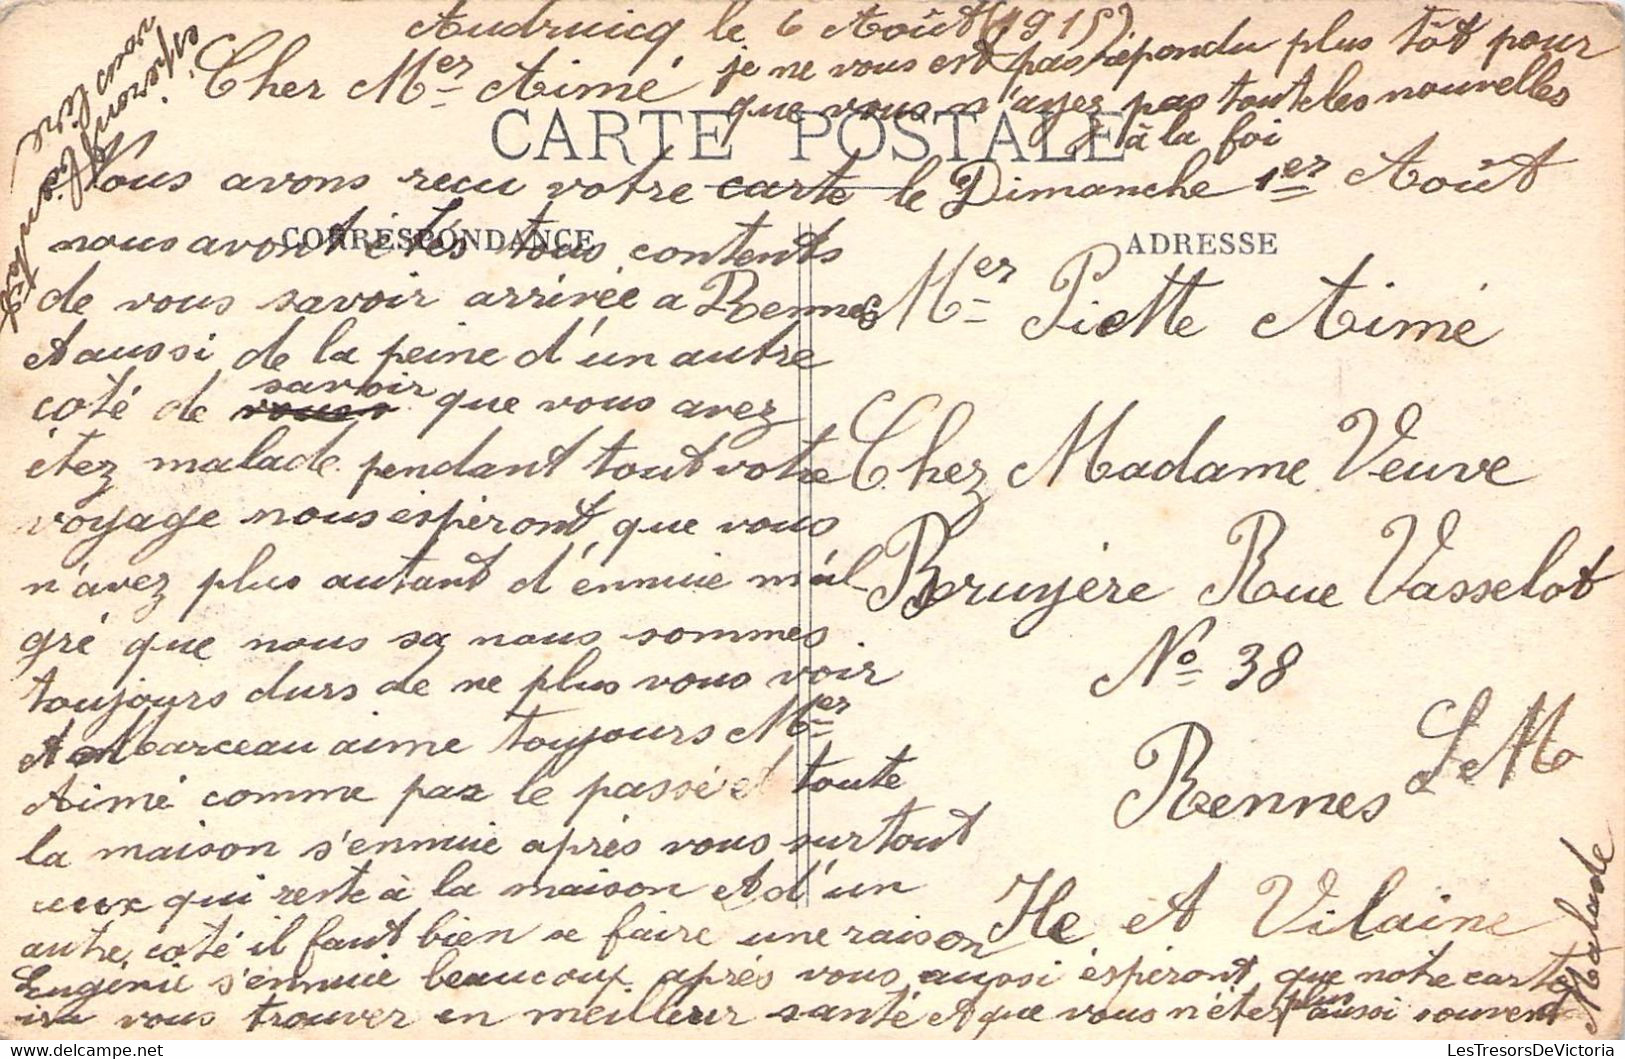 Audruicq le 6 Août (1915)
Cher Mer Aimé
je ne vous est pas répondu plus tôt pour
que vous n'ayez pas toutes les nouvelles
à la foi
CARTE POSTALE
Nous avons recu votre carte le Dimanche 1er Août
CORRESPONDANCE
nous avont étés tous contents
de vous savoir arrivée a Rennes
et aussi de la peine d'un autre
coté de savoir que vous avez
étez malade pendant tout votre
voyage nous éspéront que vous
n'avez plus autant d'énnuie mal-
gré que nous sa nous sommes
toujours durs de ne plus vous voir
et Marceau aime toujours Mer
Aimé comme par le passé et toute
la maison s'ennuie après vous surtout
ceux qui reste à la maison et d'un
autre coté il faut bien se faire une raison
Eugénie s'énnuie beaucoup après vous aussi éspéront que notre carte
ira vous trouver en meilleur santé et que vous n'étes plus aussi souvent
Malade
ADRESSE
Mer Piette Aimé
Chez Madame Veuve
Bruyère Rue Vasselot
No 38
Rennes
S.M
Ile et Vilaine
vous lire